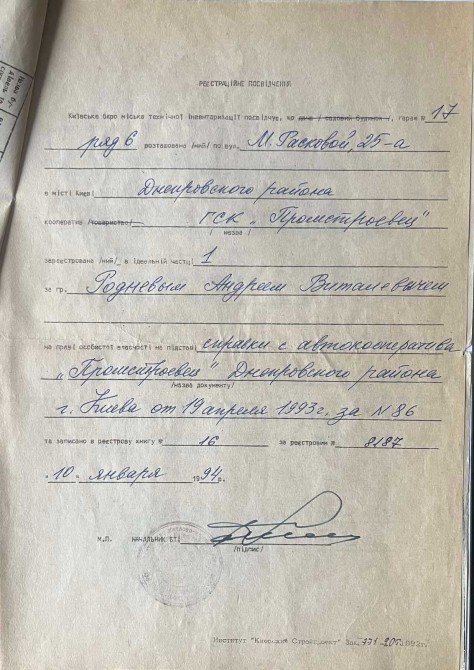 РЕЄСТРАЦІЙНЕ ПОСВІДЧЕННЯ
Київське бюро міське технічної інвентаризації посвідчує, що дача /садовий будинок/, гараж № 17
ряд 6 розташована /ний/ по вул. М. Расковой, 25-а
в місті Києві Днепровского района
кооператив /товариство/ ГСК „Промстроевец"
/ назва /
зареєстрована /ний/ в ідеальній частці 1
за гр. Родневым Андреем Виталиевичем
на праві особистої власності на підставі справки с автокооператива
„Промстроевец" Днепровского района
/назва документу/
г. Киева от 19 апреля 1993 г. за N 86
та записано в реєстрову книгу № 16 за реєстровим № 8187
10. января 1994 г.
М.П. НАЧАЛЬНИК БТІ
/підпис/
Институт "Киевский Стройпроект" Зак.